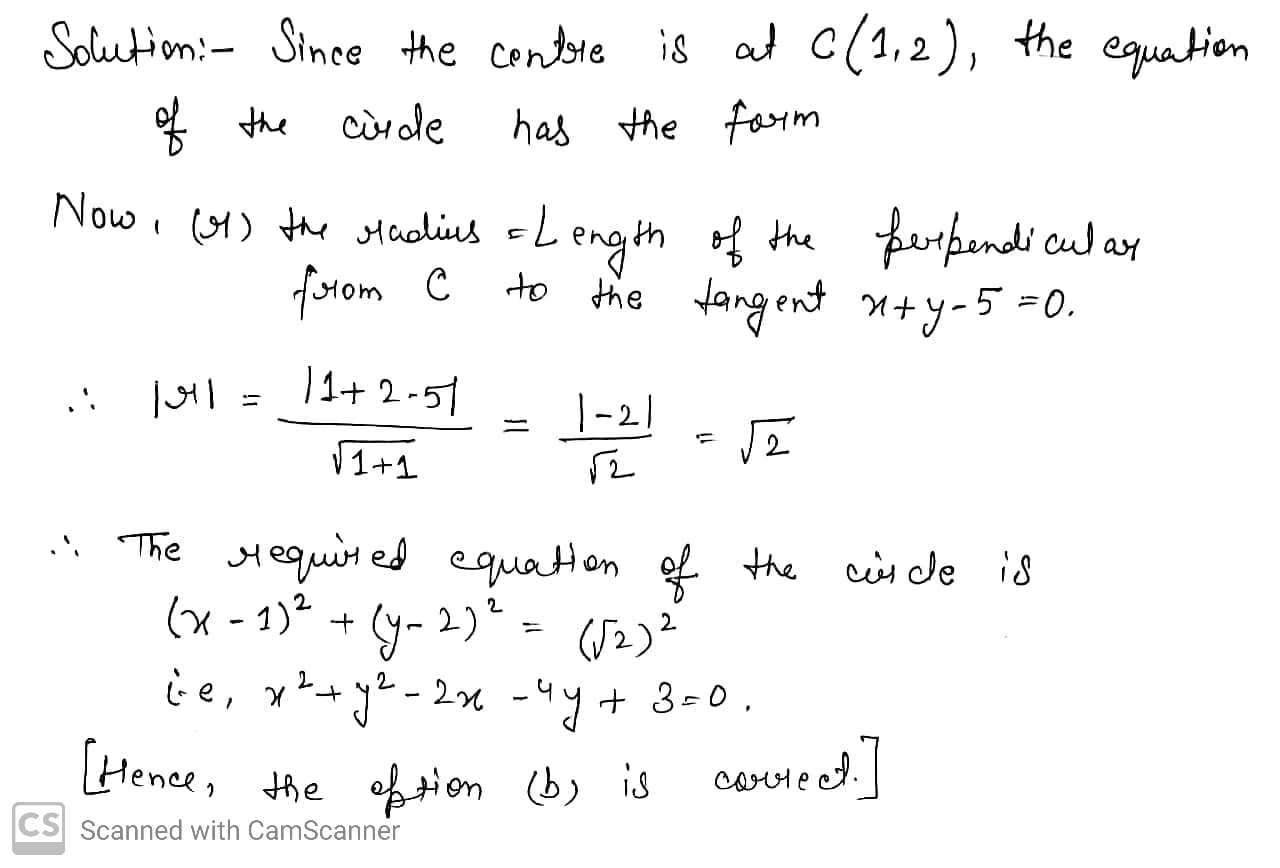 Solution:- Since the centre is at C(1,2), the equation
of the circle has the form
Now, (r) the radius = Length of the perpendicular
from C to the tangent x+y-5=0.
∴ |r| = |1+2-5| / √1+1 = |-2| / √2 = √2
∴ The required equation of the circle is
(x-1)² + (y-2)² = (√2)²
i.e, x²+y²-2x-4y+3=0.
[Hence, the option (b) is correct.]
CS Scanned with CamScanner